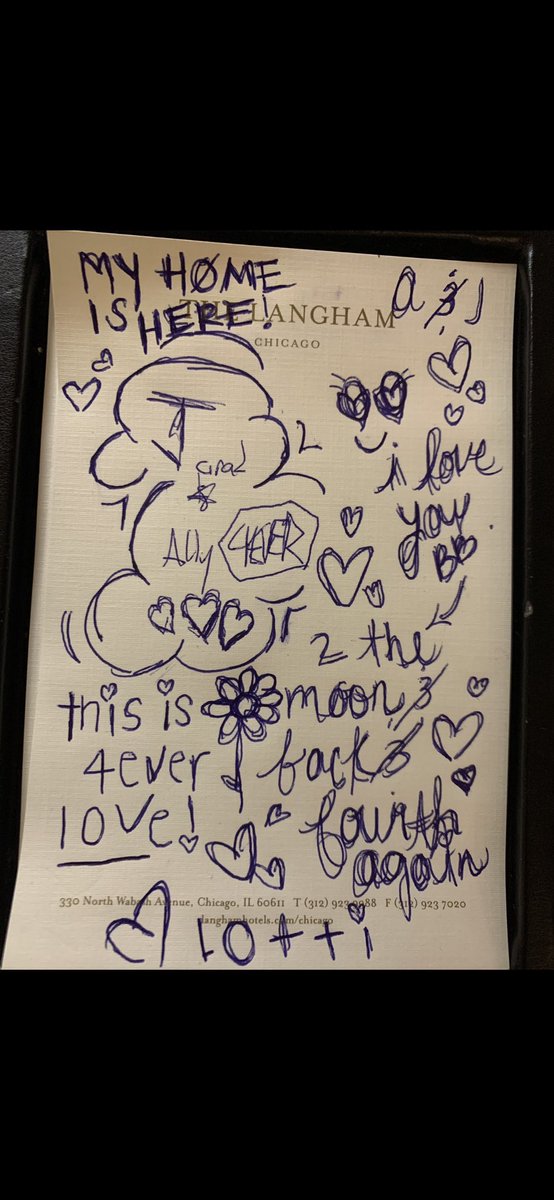 MY HØME
IS HERE!
THE LANGHAM
CHICAGO
a & J
J
and
Ally 4EVER
i love
you
BB
2 the
moon &
back &
fourth
again
this is
4ever
love!
330 North Wabash Avenue, Chicago, IL 60611 T (312) 923 9988 F (312) 923 7020
langhamhotels.com/chicago
lotti